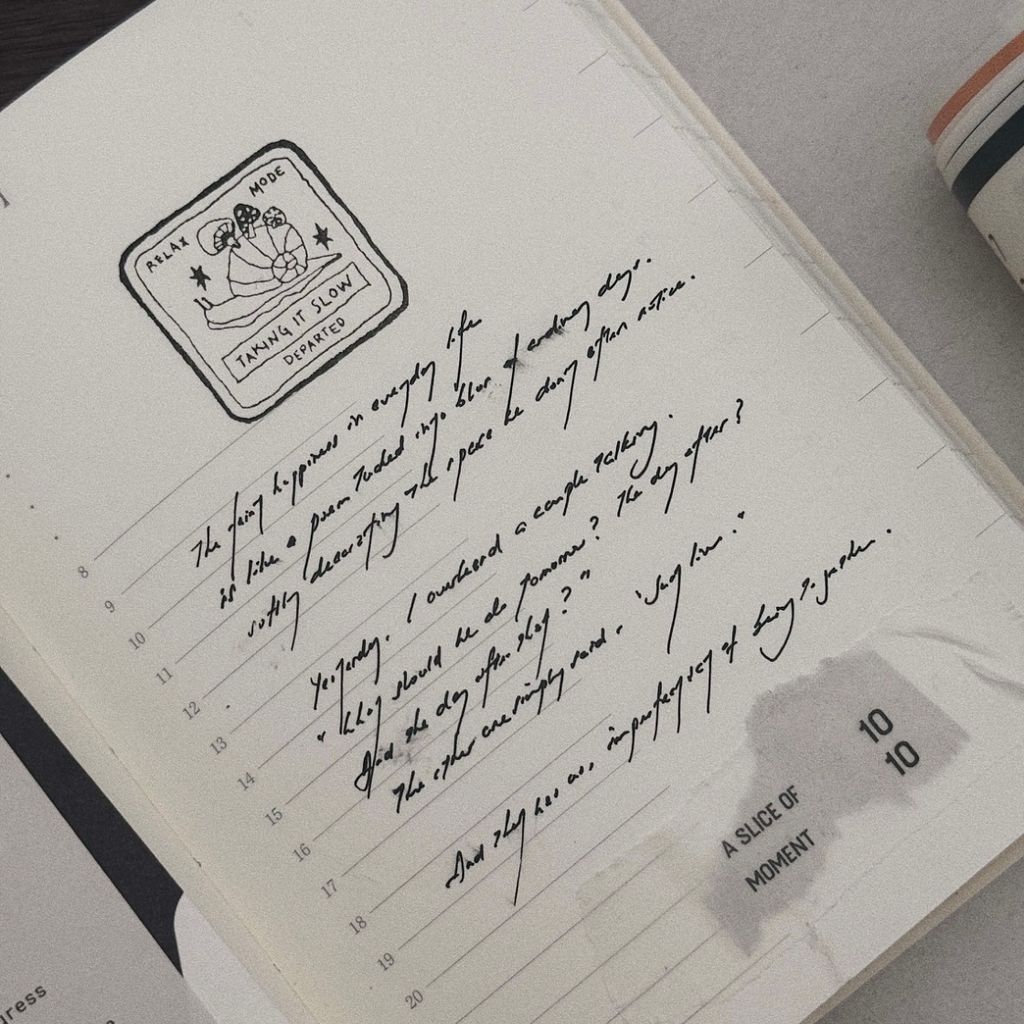 RELAX MODE
TAKING IT SLOW
DEPARTED
The faint happiness in everyday life
is like a poem tucked into blur of ordinary days.
softly decorating the space he
Yesterday. I overheard a couple talking.
"What should we do tomorrow? The day after?
And the day after that?"
The other one simply said. "Just live."
And they was
of being together.
8
9
10
11
12
13
14
15
16
17
18
19
20
10
10
A SLICE OF
MOMENT
gress